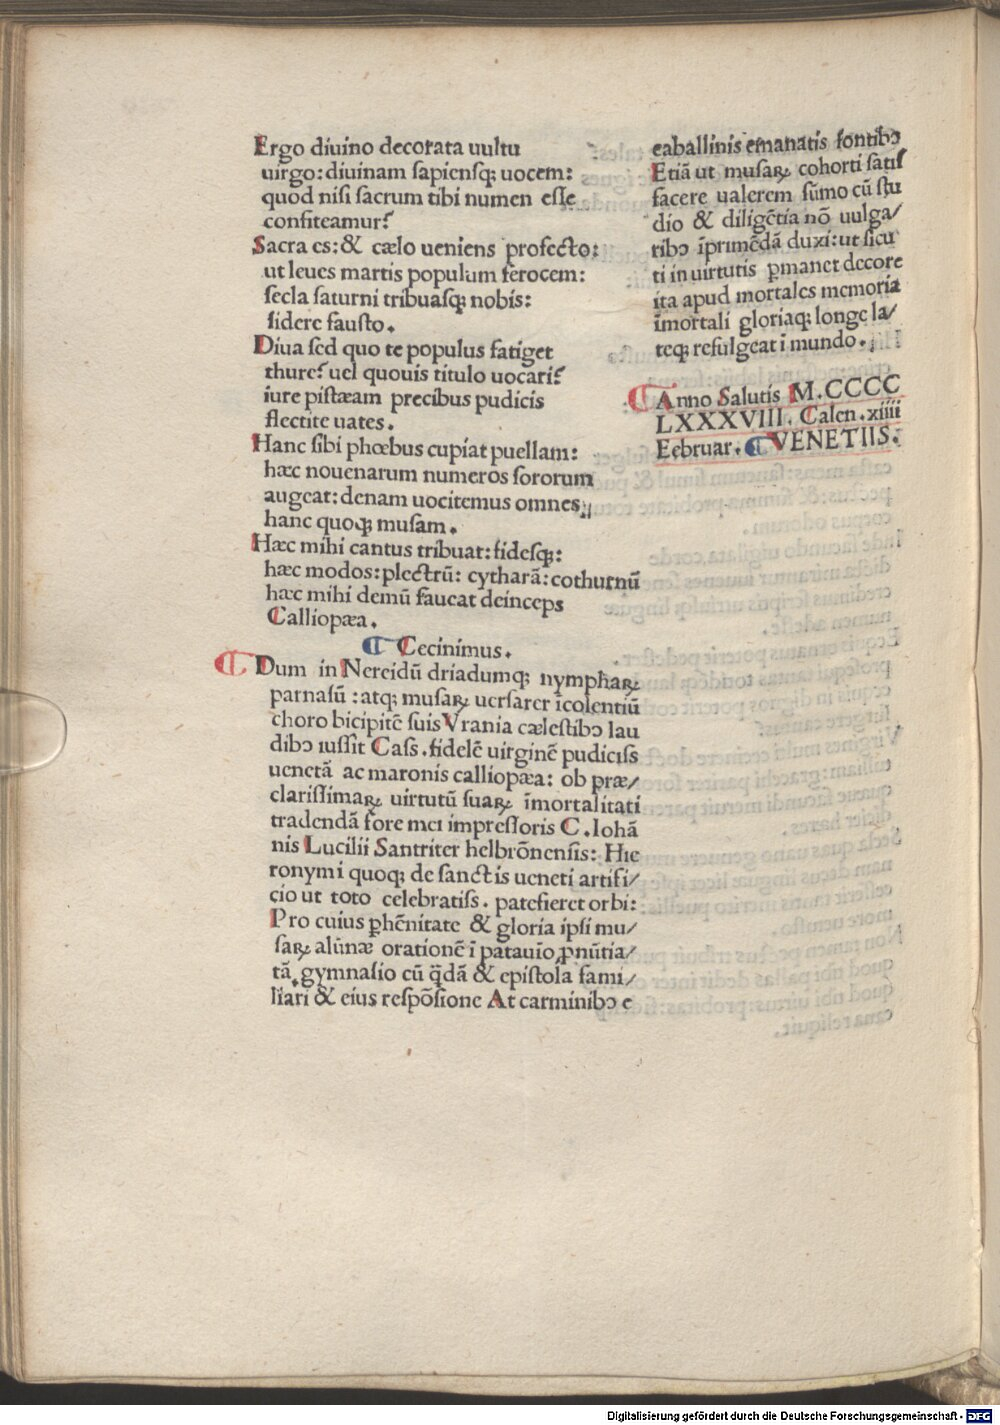 Ergo diuino decorata uultu
uirgo: diuinam sapiensq; uocem:
quod nisi sacrum tibi numen esse
confiteamur?
Sacra es: & cælo ueniens profecto:
ut leues martis populum ferocem:
secla saturni tribuasq; nobis:
sidere fausto.
Diua sed quo te populus fatiget
thure? uel quouis titulo uocari?
iure pistæam precibus pudicis
flectite uates.
Hanc sibi phœbus cupiat puellam:
hæc nouenarum numeros sororum
augeat: denam uocitemus omnes
hanc quoq; musam.
Hæc mihi cantus tribuat: fidesq;:
hæc modos: plectrũ: cytharã: cothurnũ
hæc mihi demũ faueat deinceps
Calliopæa.
¶ Cecinimus.
¶ Dum in Nereidũ driadumq; nympharꝝ
parnasũ: atq; musaꝝ uersarer ĩcolentiũ
choro bicipitẽ suis Vrania cælestibꝯ lau
dibꝯ iussit Cass. fidelẽ uirginẽ pudiciss
uenetã ac maronis calliopæa: ob præ/
clarissimaꝝ uirtutũ suaꝝ ĩmortalitati
tradendã fore mei impressoris C. Iohã
nis Lucilii Santriter helbrõnensis: Hie
ronymi quoq; de sanctis ueneti artifi/
cio ut toto celebratiss. patefieret orbi:
Pro cuius phẽnitate & gloria ipsi mu/
saꝝ alũnæ orationẽ ĩ patauio ꝓnũtia/
tã gymnasio cũ q̃dã & epistola fami/
liari & eius respõsione At carminibꝯ e
caballinis emanatis fontibꝯ
Etiã ut musaꝝ cohorti satis
facere ualerem sũmo cũ stu
dio & diligẽtia nõ uulga/
ribꝯ ĩprimẽdã duxi: ut sicu
ti in uirtutis ꝑmanet decore
ita apud mortales memoria
ĩmortali gloriaq; longe la/
teq; refulgeat ĩ mundo.
¶ Anno Salutis M.CCCC
LXXXVIII. Calen. xiiii
Februar. ¶ VENETIIS.
Digitalisierung gefördert durch die Deutsche Forschungsgemeinschaft - DFG